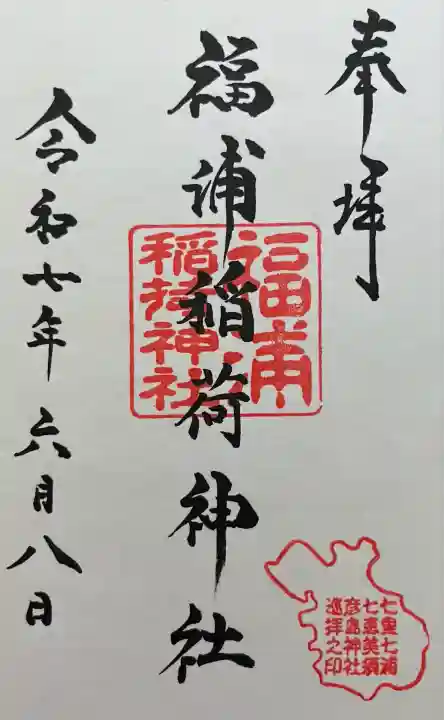 奉拝
福浦稲荷神社
福浦
稲荷神社
令和七年六月八日
七里七浦
七恵美須
彦島神社
巡拝之印